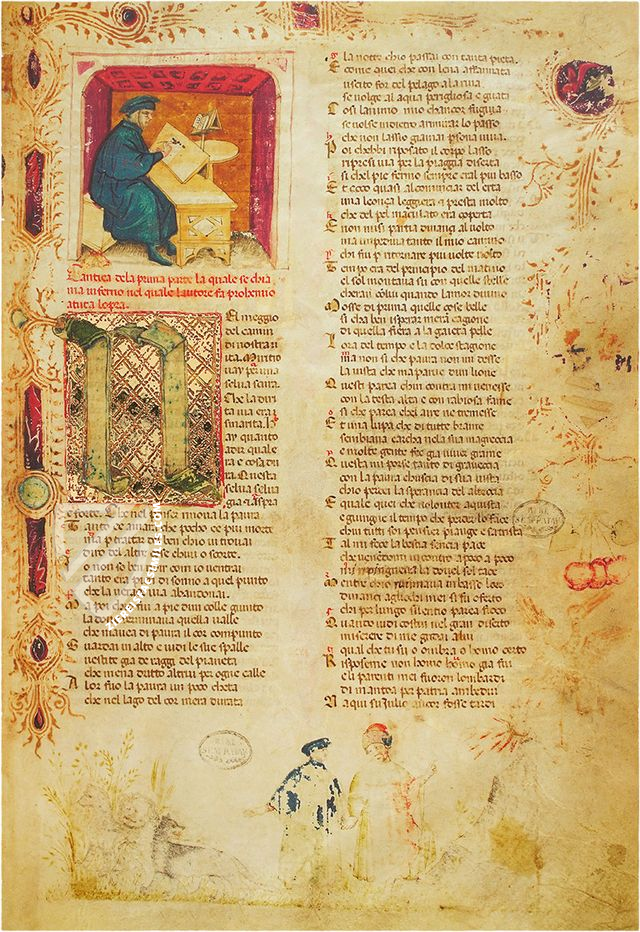 Cantica de la prima parte la quale se chia
ma inferno nel quale lautore fa prohemio
a tuta lopra.
El meggio
del camin
di nostra ui
ta. Mi ritro
uay per una
selua scura.
Che la diri
ta uia era
smarita.
ay quanto
adir quale
era e cosa du
ra. Questa
selua seluag
gia & aspra
e forte. Che nel pensier rinoua la paura
Tanto era amara che pocho e piu morte
ma p tratar del ben chio ui trouai
diro del altre cose chio u o scorte.
o non se ben ridir com io uentrai
tanto era pien di sonno a quel punto
che la verace uia abandonai.
Ma poi chio fui a pie dun colle giunto
la doue terminaua quella ualle
che mauea di paura il cor compunto
Guardai in alto e uidi le sue spalle
uestite gia de raggi del pianeta
che mena dritto altrui per ogne calle
Alor fu la paura un poco cheta
che nel lago del cor mera durata
la notte chio passai con tanta pieta.
E come quei che con lena affannata
uscito for del pelago a la riua
se uolge al aqua perigliosa e guata
Cosi lanimo mio chancor fugiua
se uolse indietro a rimirar lo passo
che non lasso giamai psona uiua.
Poi chebbi riposato il corpo lasso
ripresi uia per la piaggia diserta
si chel pie fermo sempre era l piu basso
Et ecco quasi al cominciar del erta
una leonça leggiera e presta molto
che del pel maculato era coperta
E non mi si partia dinanç al uolto
ma impediua tanto il mio camino
chi fui p ritornare piu uolte uolto
Tempo era del principio del matino
el sol montaua su con quelle stelle
cheran cólui quando lamor diuino
Mosse di prima quelle cose belle
si cha ben isperar mera cagione
di quella fiera a la gaieta pelle
Lora del tempo e la dolce stagione
ma non si che paura non mi desse
la uista che maparue dun lione
Questi parea chui contra mi uenesse
con la testa alta e con rabiosa fame
si che parea chel aire ne tremesse
Et una lupa che di tutte brame
sembiaua carcha nela sua magreccia
e molte gente fee gia uiuer grame
Questa mi porse tanto di graueccia
con la paura chuscia di sua uista
chio perdei la sperança del alteccia
E quale quei che uolontier aquista
e giunge il tempo che perder lo face
chen tutti soi pensier piange e satrista
Tal mi fece la bestia sença pace
che uenendomi in contro a poco a poco
mi ripingneua la doue l sol tace
Mentre chio ruinaua in basso loco
dinanci agliochi mei si fu oferto
chi per lungo silentio parea fioco
Quando uidi costui nel gran diserto
miserere di me gridai a lui
qual che tu si o ombra o homo certo
Risposeme non homo homo gia fui
e li parenti mei fuoron lombardi
di mantoa per patria ambedui
Naqui su iulio ancor fosse tardi